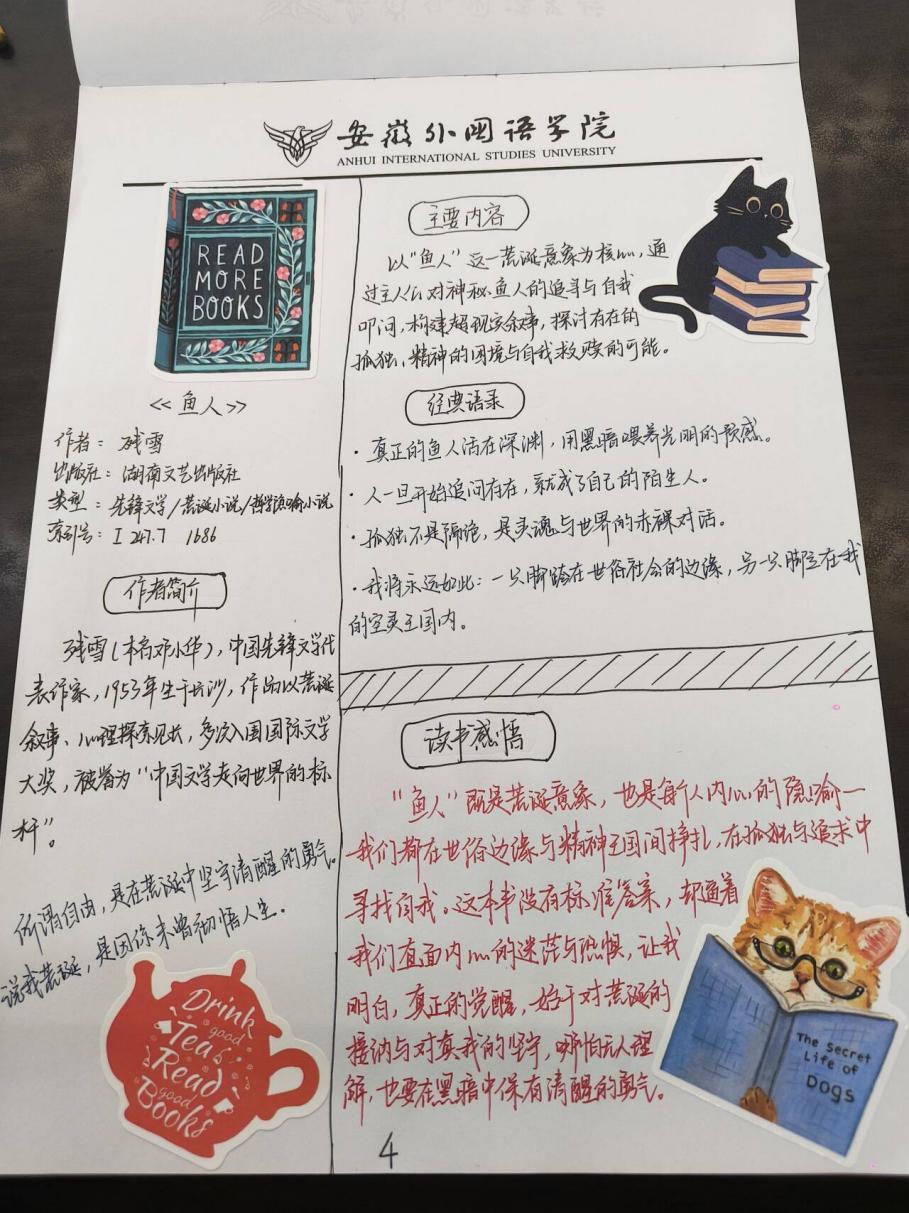 安徽外国语学院
ANHUI INTERNATIONAL STUDIES UNIVERSITY
READ
MORE
BOOKS
<<鱼人>>
作者：残雪
出版社：湖南文艺出版社
类型：先锋文学/荒诞小说/哲学隐喻小说
索引号：I 247.7 1686
作者简介
残雪(本名邓小华)，中国先锋文学代
表作家，1953年生于长沙，作品以荒诞
叙事、心理探索见长，多次入围国际文学
大奖，被誉为“中国文学走向世界的标
杆”。
所谓自由，是在荒诞中坚守清醒的勇气。
说我荒诞，是因你未曾彻悟人生.
Drink
good
Tea
Read
good
Books
主要内容
以“鱼人”这一荒诞意象为核心，通
过主人公对神秘鱼人的追寻与自我
叩问，构建超现实叙事，探讨存在的
孤独、精神的困境与自我救赎的可能。
经典语录
·真正的鱼人活在深渊，用黑暗喂养光明的预感。
·人一旦开始追问存在，就成了自己的陌生人。
·孤独不是隔绝，是灵魂与世界的赤裸对话。
·我将永远如此：一只脚踏在世俗社会的边缘，另一只脚立在我
的空灵王国内。
读书感悟
“鱼人”既是荒诞意象，也是每个人内心的隐喻—
我们都在世俗边缘与精神王国间挣扎，在孤独与追求中
寻找自我。这本书没有标准答案，却逼着
我们直面内心的迷茫与恐惧，让我
明白，真正的觉醒，始于对荒诞的
接纳与对真我的坚守，哪怕无人理
解，也要在黑暗中保有清醒的勇气。
The Secret
Life of
Dogs
4